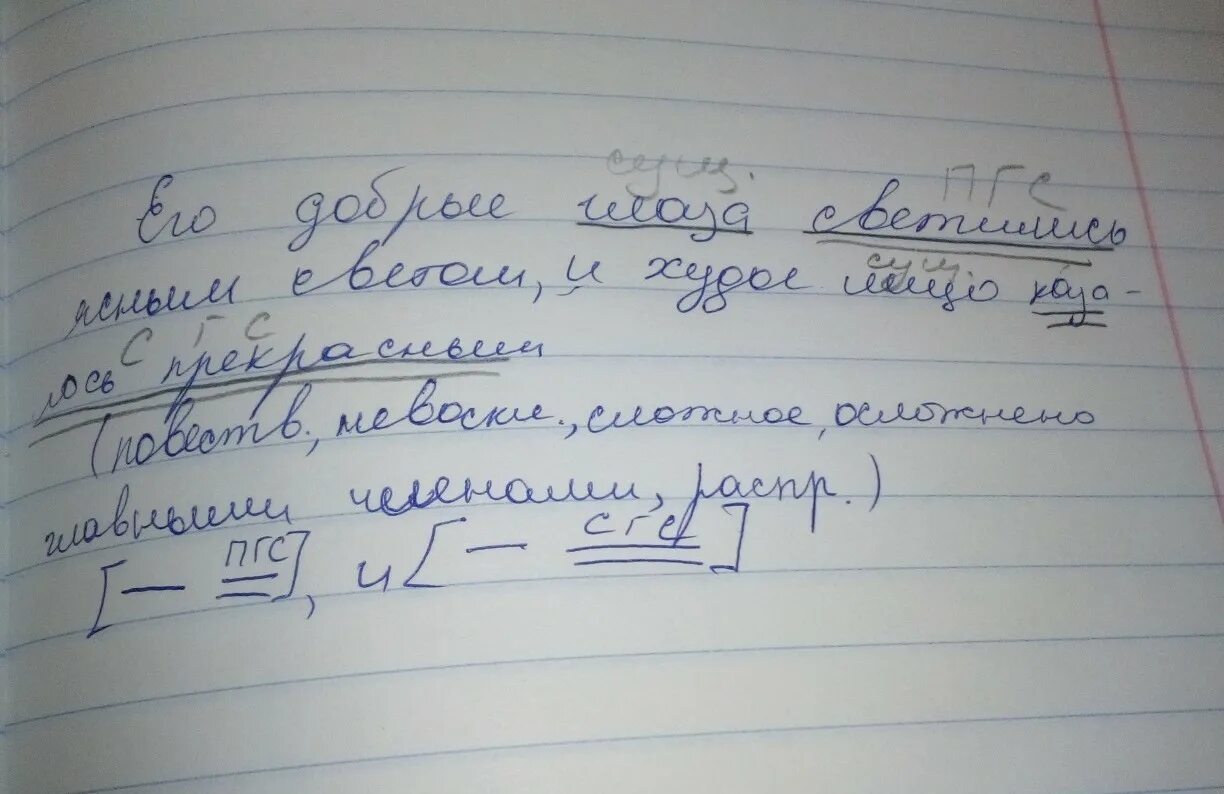 сущ. ПГС
Его добрые глаза светились
сущ
ясным светом, и худое лицо каза-
С Г С
лось прекрасным
(повеств., невоскл., сложное, осложнено
главными членами, распр.)
[— ПГС], и [— СГС]